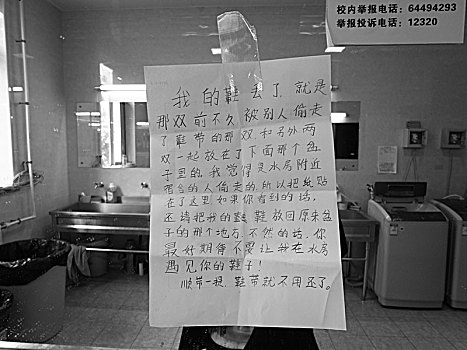 校内举报电话：64494293
举报投诉电话：12320
我的鞋丢了,就是
那双前不久被别人偷走
了鞋带的那双,和另外两
双一起放在了下面那个盆
子里的,我觉得是水房附近
宿舍的人偷走的,所以把纸贴
在了这里,如果你看到的话,
还请把我的鞋鞋放回原来盆
子的那个地方,不然的话,你
最好期待不要让我在水房
遇见你的鞋子！
顺带一提,鞋带就不用还了。